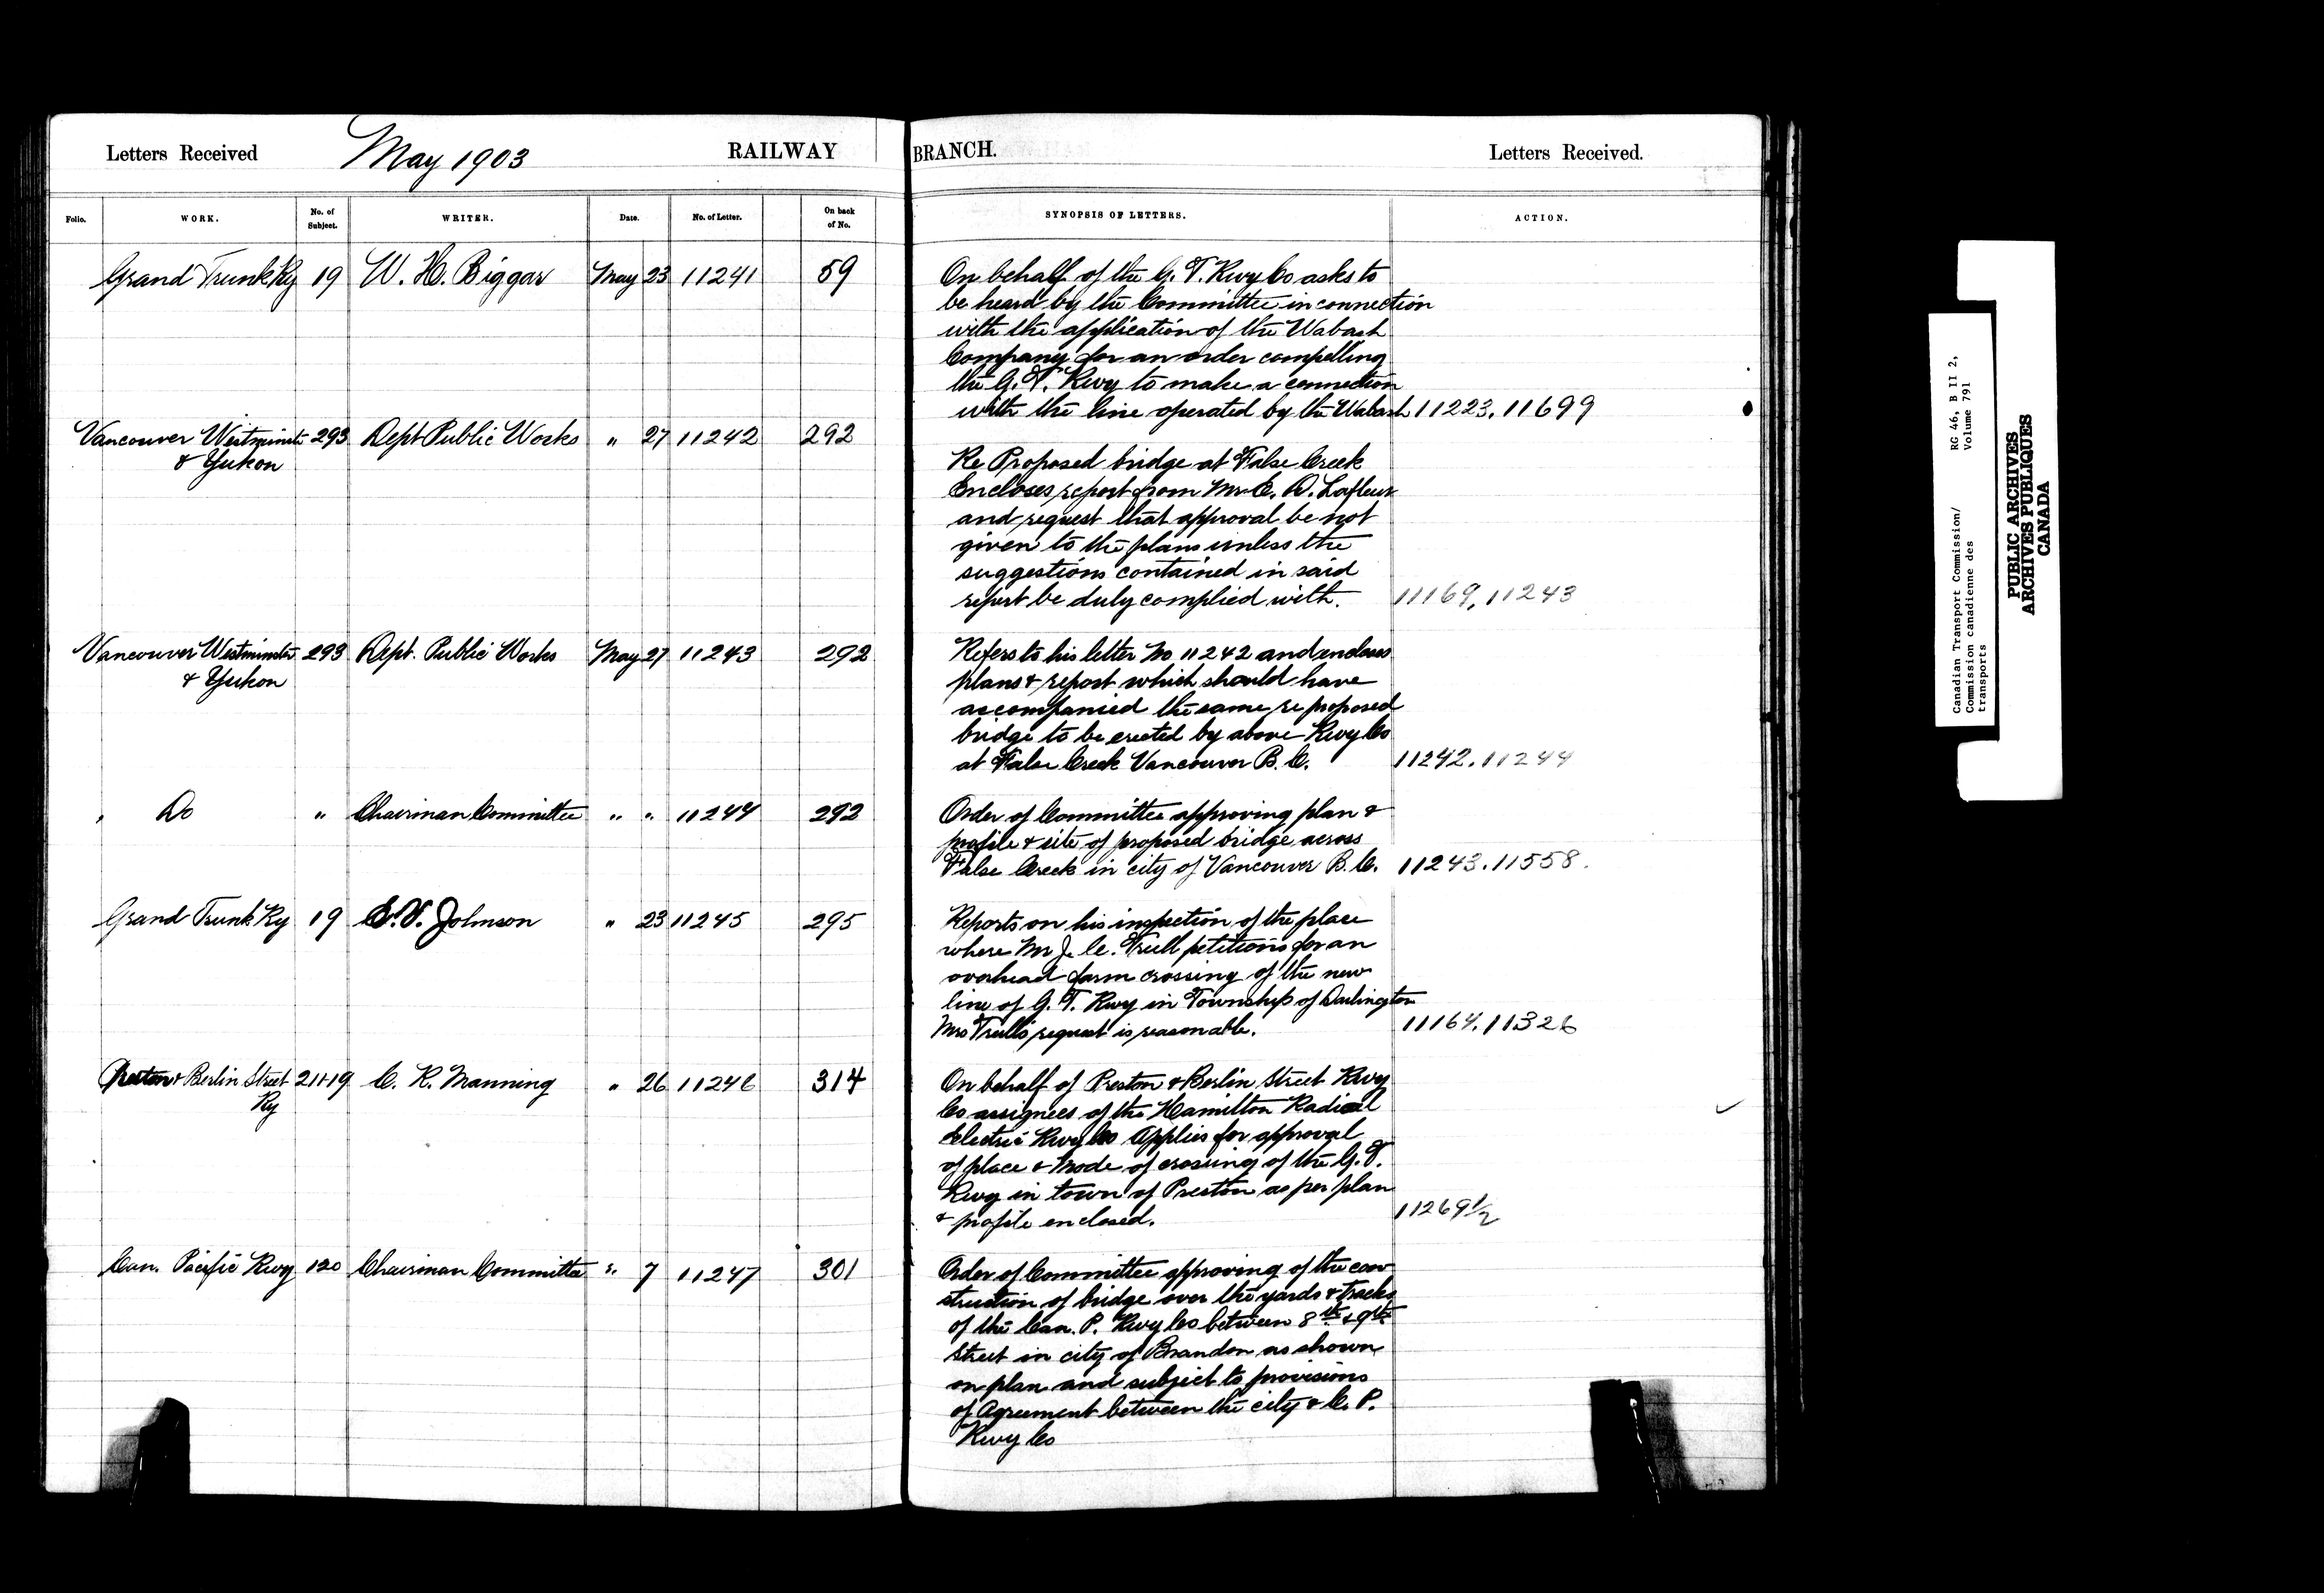 Letters Received May 1903 RAILWAY BRANCH. Letters Received.
Folio. WORK. No. of Subject. WRITER. Date. No. of Letter. On back of No. SYNOPSIS OF LETTERS. ACTION.
Grand Trunk Ry 19 W. H. Biggar May 23 11241 59 On behalf of the G. T. Rwy Co asks to
be heard by the Committee in connection
with the application of the Wabash
Company for an order compelling
the G. T. Rwy to make a connection
with the line operated by the Wabash 11223. 11699
Vancouver Westminster 293 Dept Public Works " 27 11242 292
& Yukon
Re Proposed bridge at False Creek
Encloses report from Mr E. D. Lafleur
and request that approval be not
given to the plans unless the
suggestions contained in said
report be duly complied with. 11169, 11243
Vancouver Westminster 293 Dept. Public Works May 27 11243 292 Refers to his letter No 11242 and encloses
& Yukon plans & report which should have
accompanied the same re proposed
bridge to be erected by above Rwy Co
at False Creek Vancouver B. C. 11242. 11244
" Do " Chairman Committee " " 11244 292 Order of Committee approving plan &
profile & site of proposed bridge across
False Creek in city of Vancouver B. C. 11243. 11558.
Grand Trunk Ry 19 E. V. Johnson " 23 11245 295 Reports on his inspection of the place
where Mr J. C. Trull petitions for an
overhead farm crossing of the new
line of G. T. Rwy in Township of Darlington
Mrs Trull's request is reasonable. 11164. 11326
Preston & Berlin Street 21+19 C. R. Manning " 26 11246 314 On behalf of Preston & Berlin Street Rwy
Ry Co assignees of the Hamilton Radial
Electric Rwy Co Applies for approval
of place & Mode of crossing of the G. T.
Rwy in town of Preston as per plan
& profile enclosed. 11269½
Can. Pacific Rwy 120 Chairman Committee " 7 11247 301 Order of Committee approving of the con
struction of bridge over the yards & tracks
of the Can. P. Rwy Co between 8th & 9th
Street in city of Brandon as shown
on plan and subject to provisions
of Agreement between the city & C. P.
Rwy Co
Canadian Transport Commission/ RG 46, B II 2,
Commission canadienne des Volume 791
transports
PUBLIC ARCHIVES
ARCHIVES PUBLIQUES
CANADA